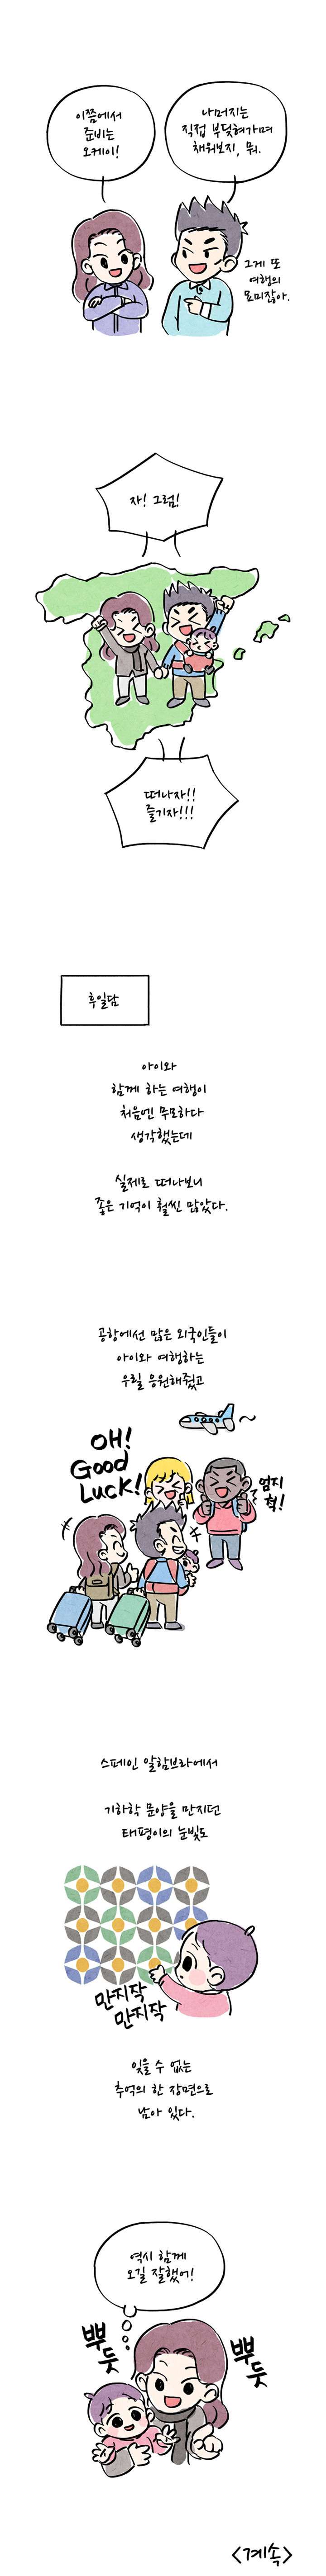 이쯤에서
준비는
오케이!
나머지는
직접 부딪혀가며
채워보지, 뭐.
그게 또
여행의
묘미잖아.
자! 그럼!
떠나자!!
즐기자!!!
후일담
아이와
함께 하는 여행이
처음엔 무모하다
생각했는데
실제로 떠나보니
좋은 기억이 훨씬 많았다.
공항에선 많은 외국인들이
아이와 여행하는
우릴 응원해줬고
OH!
Good
Luck!
엄지
척!
스페인 알함브라에서
기하학 문양을 만지던
태평이의 눈빛도
만지작
만지작
잊을 수 없는
추억의 한 장면으로
남아 있다.
역시 함께
오길 잘했어!
뿌
듯
뿌
듯
<계속>